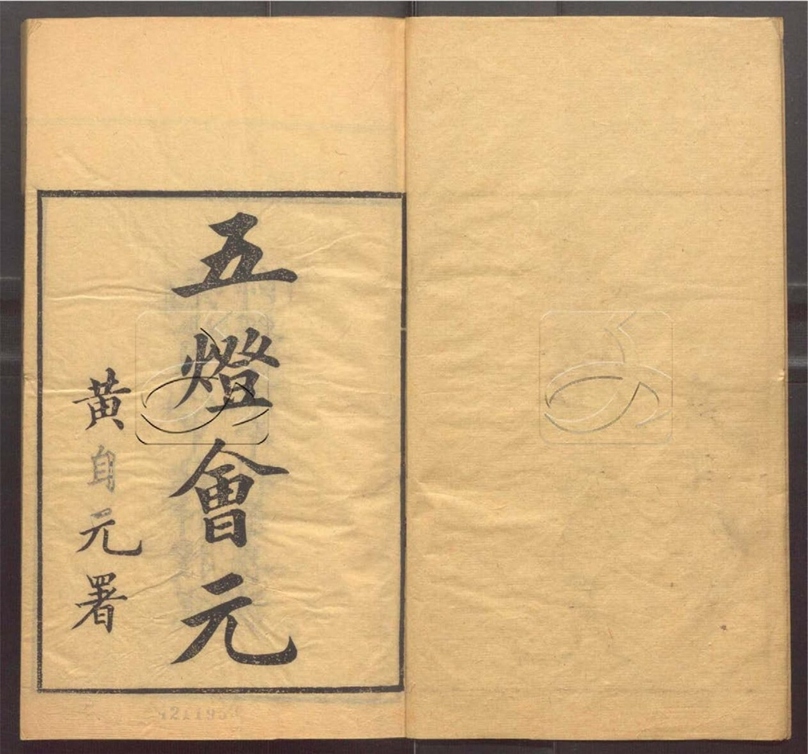 五燈會元
黃自元署